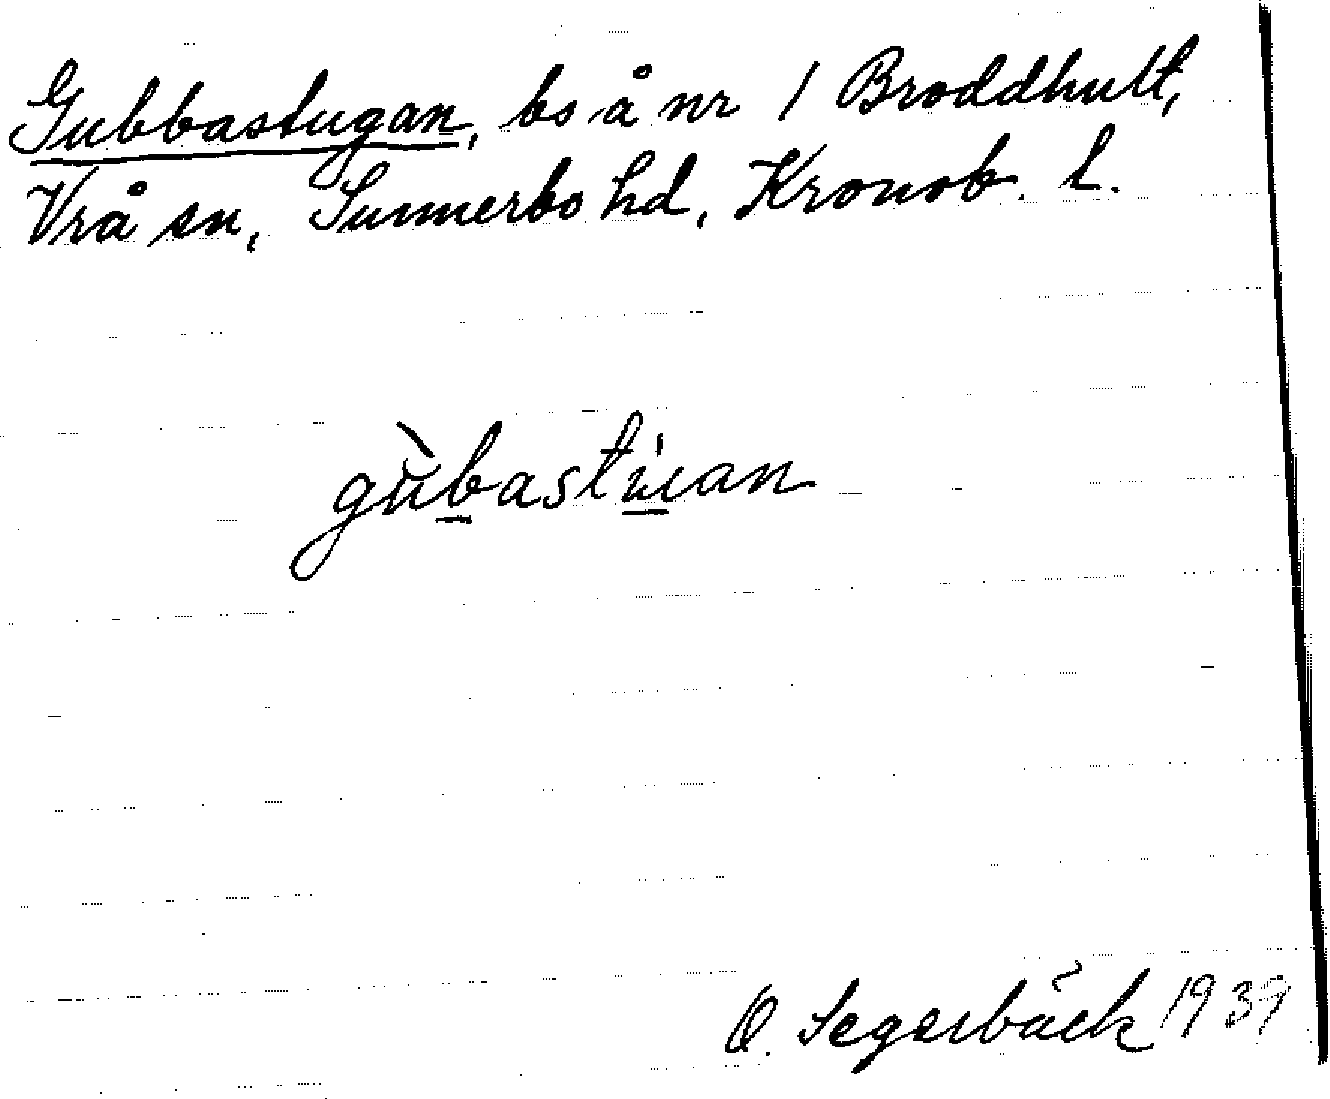 Gubbastugan, bo å nr 1 Broddhult,
Vrå sn, Sunnerbo hd, Kronob. l.
gùbastu̇an
O. Segerbäck 1939